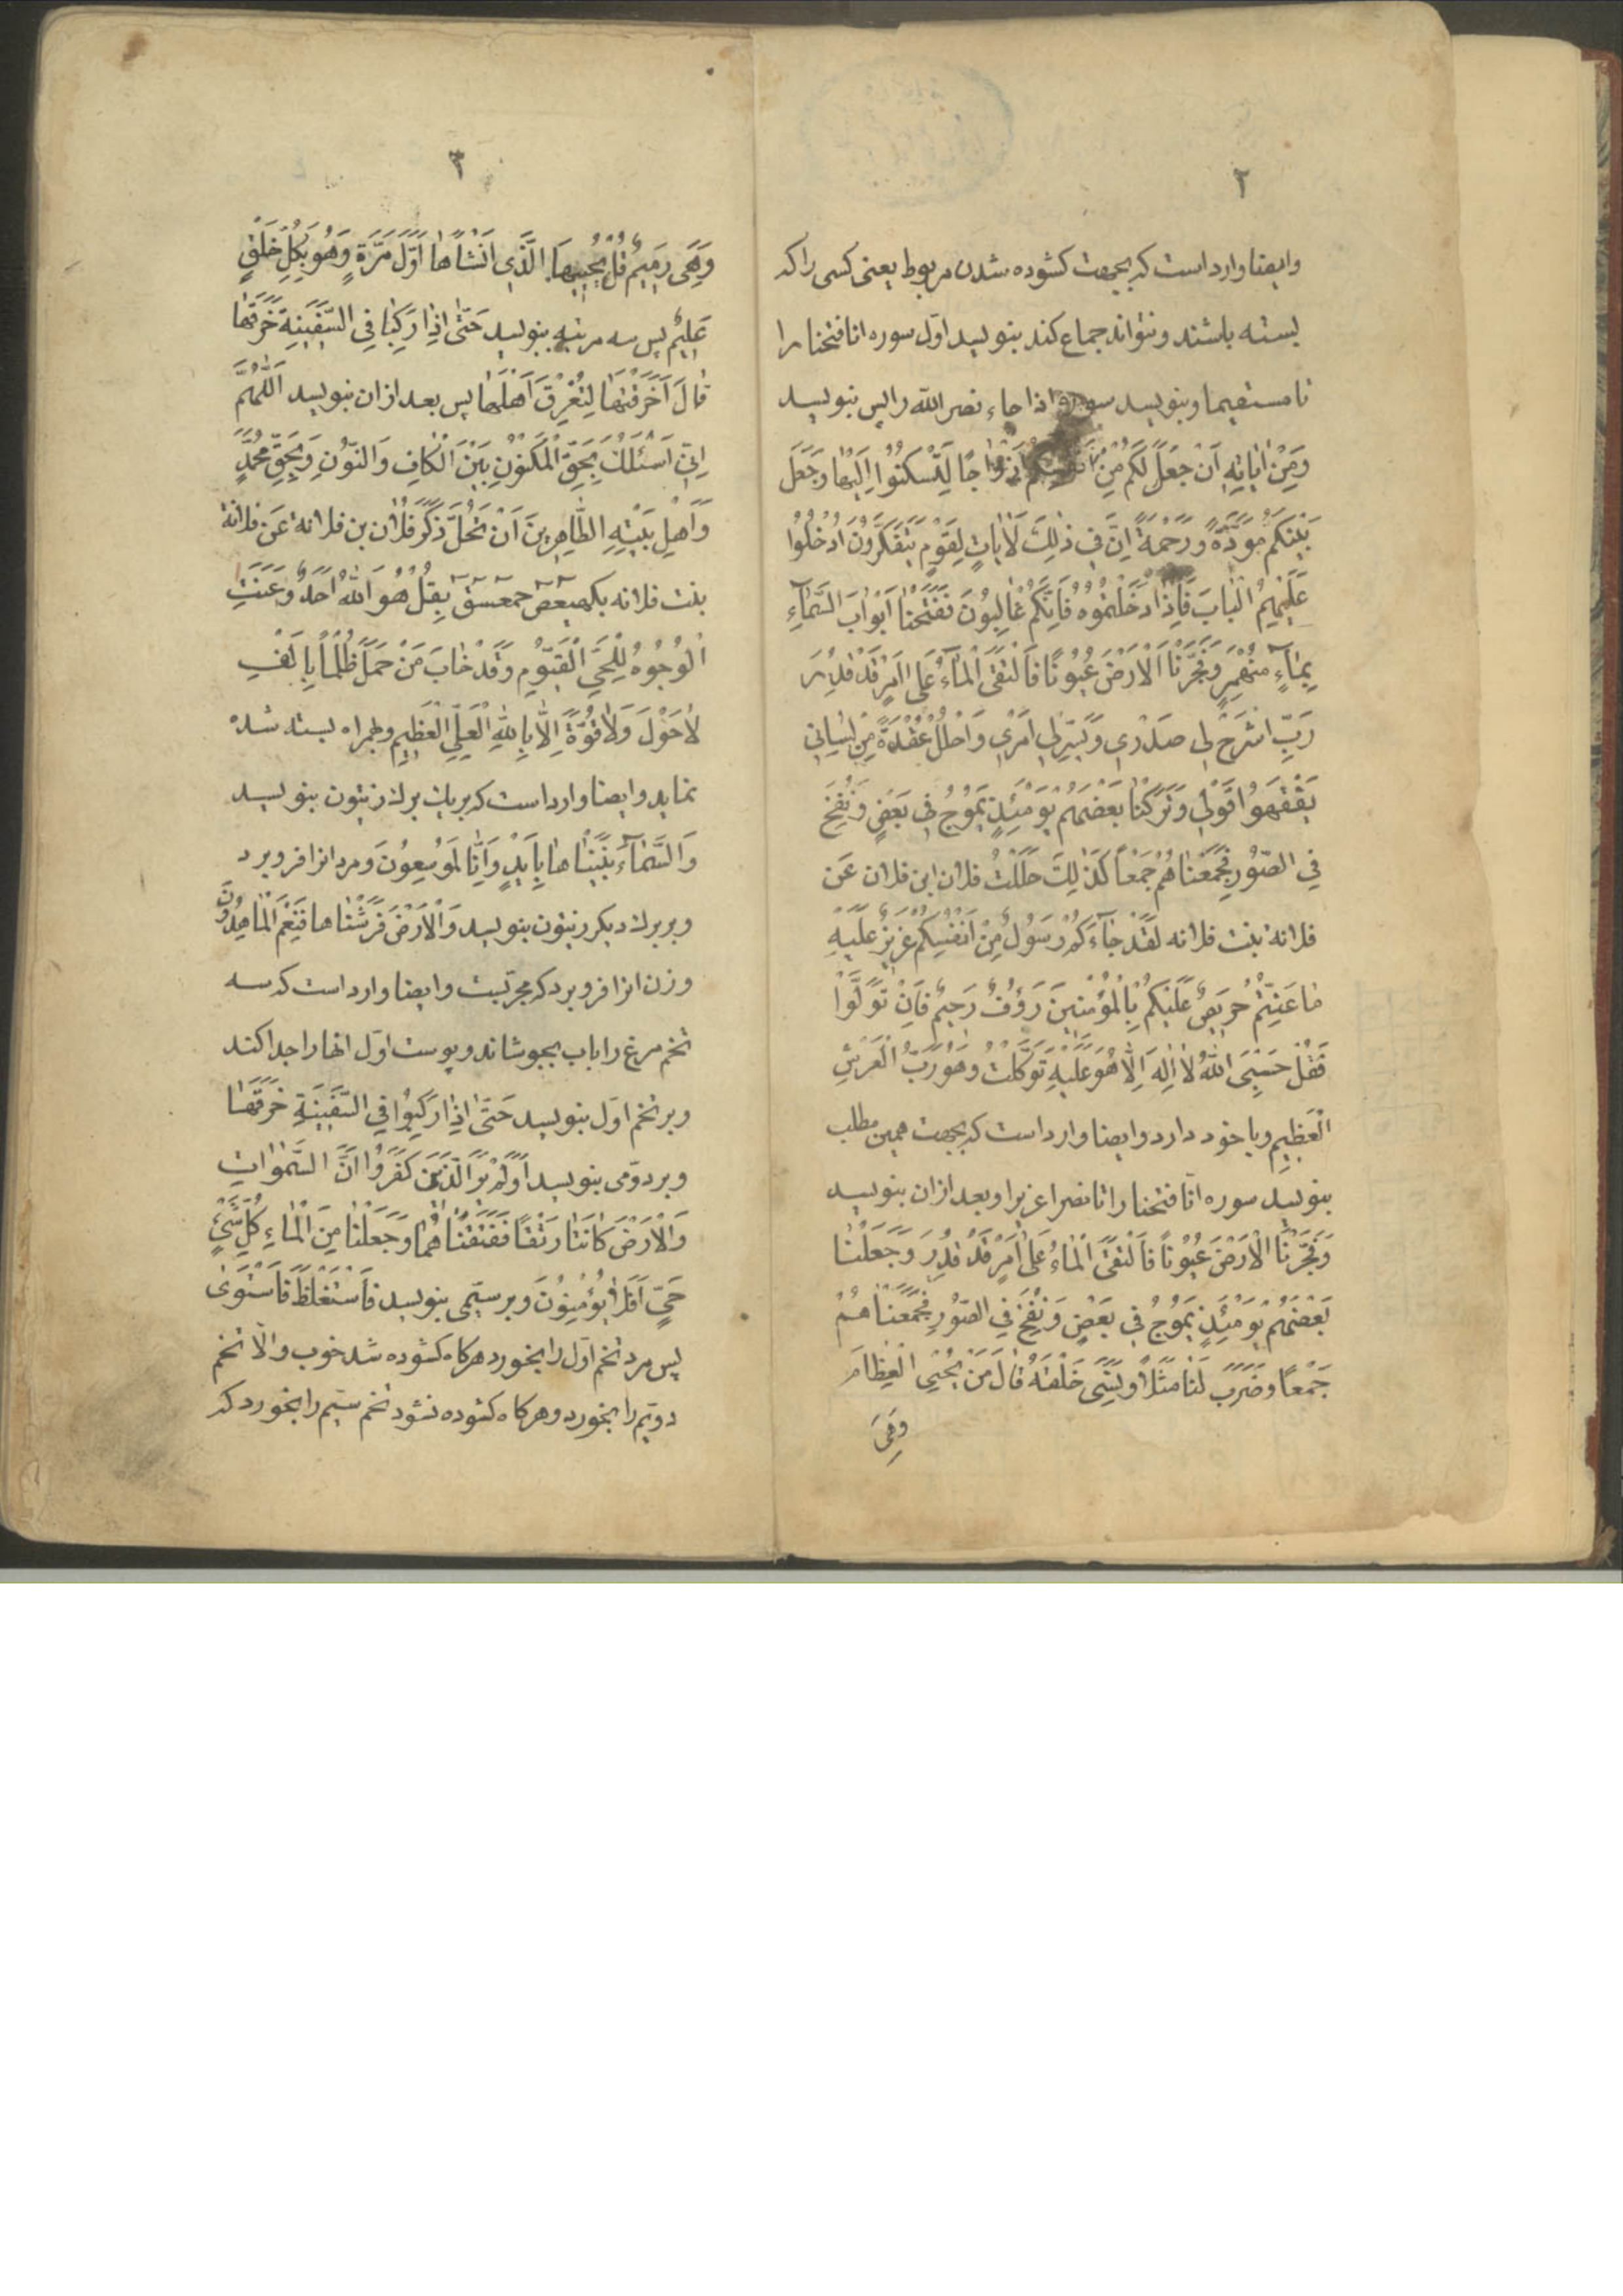 ۲
وایضا وارد است که بجهت کشوده شدن مربوط یعنی کسی را که
بسته باشند و نتواند جماع کند بنویسد اوّل سوره انا فتحنا را
تا مستقیما و بنویسد سوره اذا جاء نصر الله را پس بنویسد
وَمِنْ اٰیٰاتِهِ اَنْ جَعَلَ لَکُمْ مِنْ اَنْفُسِکُمْ اَزْوٰاجًا لِتَسْکُنُوا اِلَیْهٰا وَجَعَلَ
بَیْنَکُمْ مَوَدَّةً وَرَحْمَةً اِنَّ فی ذٰلِكَ لَاٰیٰاتٍ لِقَوْمٍ یَتَفَکَّرُونَ اُدْخُلُوا
عَلَیْهِمُ الْبٰابَ فَاِذٰا دَخَلْتُمُوهُ فَاِنَّکُمْ غٰالِبُونَ فَفَتَحْنٰا اَبْوٰابَ السَّمٰآءِ
بِمٰآءٍ مُنْهَمِرٍ وَفَجَّرْنَا الْاَرْضَ عُیُونًا فَالْتَقَی الْمٰآءُ عَلیٰ اَمْرٍ قَدْ قُدِرَ
رَبِّ اشْرَحْ لی صَدْری وَیَسِّرْ لی اَمْری وَاحْلُلْ عُقْدَةً مِنْ لِسٰانی
یَفْقَهُوا قَوْلی وَتَرَکْنٰا بَعْضَهُمْ یَوْمَئِذٍ یَمُوجُ فی بَعْضٍ وَنُفِخَ
فِی الصُّورِ فَجَمَعْنٰاهُمْ جَمْعاً کَذٰلِكَ حَلَلْتُ فلان ابن فلان عَن
فلانة بنت فلانه لَقَدْ جٰآءَکُمْ رَسُولٌ مِنْ اَنْفُسِکُمْ عَزیزٌ عَلَیْهِ
مٰا عَنِتُّمْ حَریصٌ عَلَیْکُمْ بِالْمُؤْمِنینَ رَؤُفٌ رَحیمٌ فَاِنْ تَوَلَّوْا
فَقُلْ حَسْبِیَ اللهُ لٰا اِلٰهَ اِلَّا هُوَ عَلَیْهِ تَوَکَّلْتُ وَهُوَ رَبُّ الْعَرْشِ
الْعَظیمِ و با خود دارد وایضا وارد است که بجهت همین مطلب
بنویسد سوره انّا فتحنا را تا نصرا عزیزا و بعد ازان بنویسد
وَفَجَّرْنَا الْاَرْضَ عُیُونًا فَالْتَقَی الْمٰاءُ عَلیٰ اَمْرٍ قَدْ قُدِرَ وَجَعَلْنٰا
بَعْضَهُمْ یَوْمَئِذٍ یَمُوجُ فی بَعْضٍ وَنُفِخَ فِی الصُّورِ فَجَمَعْنٰاهُمْ
جَمْعًا وَضَرَبَ لَنٰا مَثَلًا وَنَسِیَ خَلْقَهُ قٰالَ مَنْ یُحْیِی الْعِظٰامَ
وَهِیَ
۳
وَهِیَ رَمیمٌ قُلْ یُحْییهَا الَّذی اَنْشَاَهٰا اَوَّلَ مَرَّةٍ وَهُوَ بِکُلِّ خَلْقٍ
عَلیمٌ پس سه مرتبه بنویسد حَتّٰی اِذٰا رَکِبٰا فِی السَّفینَةِ خَرَقَهٰا
قٰالَ اَخَرَقْتَهٰا لِتُغْرِقَ اَهْلَهٰا پس بعد ازان بنویسد اَللّٰهُمَّ
اِنّی اَسْئَلُكَ بِحَقِّ الْمَکْنُونِ بَیْنَ الْکٰافِ وَالنُّونِ وَبِحَقِّ مُحَمَّدٍ
وَاَهْلِ بَیْتِهِ الطّٰاهِرینَ اَنْ تَحُلَّ ذَکَرَ فُلٰان بن فلانة عَن فلانة
بنت فلانه بکهیعص حمعسق بِقُلْ هُوَ اللهُ اَحَدٌ وَعَنَتِ
الْوُجُوهُ لِلْحَیِّ الْقَیُّومِ وَقَدْ خٰابَ مَنْ حَمَلَ ظُلْمًا بِاَلْفِ
لٰا حَوْلَ وَلٰا قُوَّةَ اِلّٰا بِاللهِ الْعَلِیِّ الْعَظیمِ و همراه بسته شده
نماید وایضا وارد است که بر یك برك زیتون بنویسد
وَالسَّمٰآءَ بَنَیْنٰاهٰا بِاَیْدٍ وَاِنّٰا لَمُوسِعُونَ و مرد انرا فرو برد
و بر برك دیکر زیتون بنویسد وَالْاَرْضَ فَرَشْنٰاهٰا فَنِعْمَ الْمٰاهِدُونَ
و زن انرا فرو برد که مجرّبست وایضا وارد است که سه
تخم مرغ را باب بجوشاند و پوست اوّل انها را جدا کند
و بر تخم اوّل بنویسد حَتّٰی اِذٰا رَکِبُوا فِی السَّفینَةِ خَرَقَهٰا
و بر دوّمی بنویسد اَوَلَمْ یَرَ الَّذینَ کَفَرُوا اَنَّ السَّمٰوٰاتِ
وَالْاَرْضَ کٰانَتٰا رَتْقًا فَفَتَقْنٰاهُمٰا وَجَعَلْنٰا مِنَ الْمٰاءِ کُلَّ شَیْءٍ
حَیٍّ اَفَلٰا یُؤْمِنُونَ و بر سیّمی بنویسد فَاسْتَغْلَظَ فَاسْتَوٰی
پس مرد تخم اوّل را بخورد هرکاه کشوده شد خوب والّا تخم
دویّم را بخورد و هرکاه کشوده نشود تخم سیّم را بخورد که